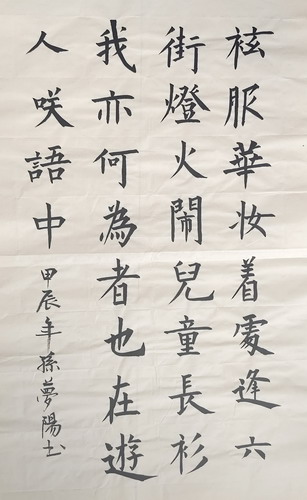 袨服華妝着處逢六
街燈火鬧兒童長衫
我亦何為者也在遊
人咲語中
甲辰年孫夢陽书